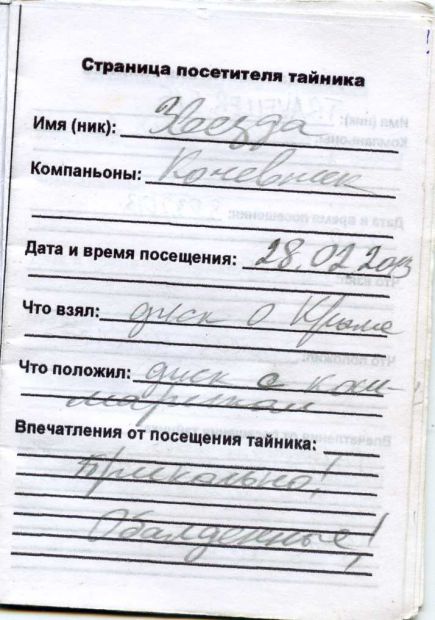 Страница посетителя тайника
Имя (ник): Звезда
Компаньоны: Кочевник
Дата и время посещения: 28.02.2013
Что взял: диск о Крыме
Что положил: диск с кош-
мариком
Впечатления от посещения тайника:
Прикольно!
Обалденные!